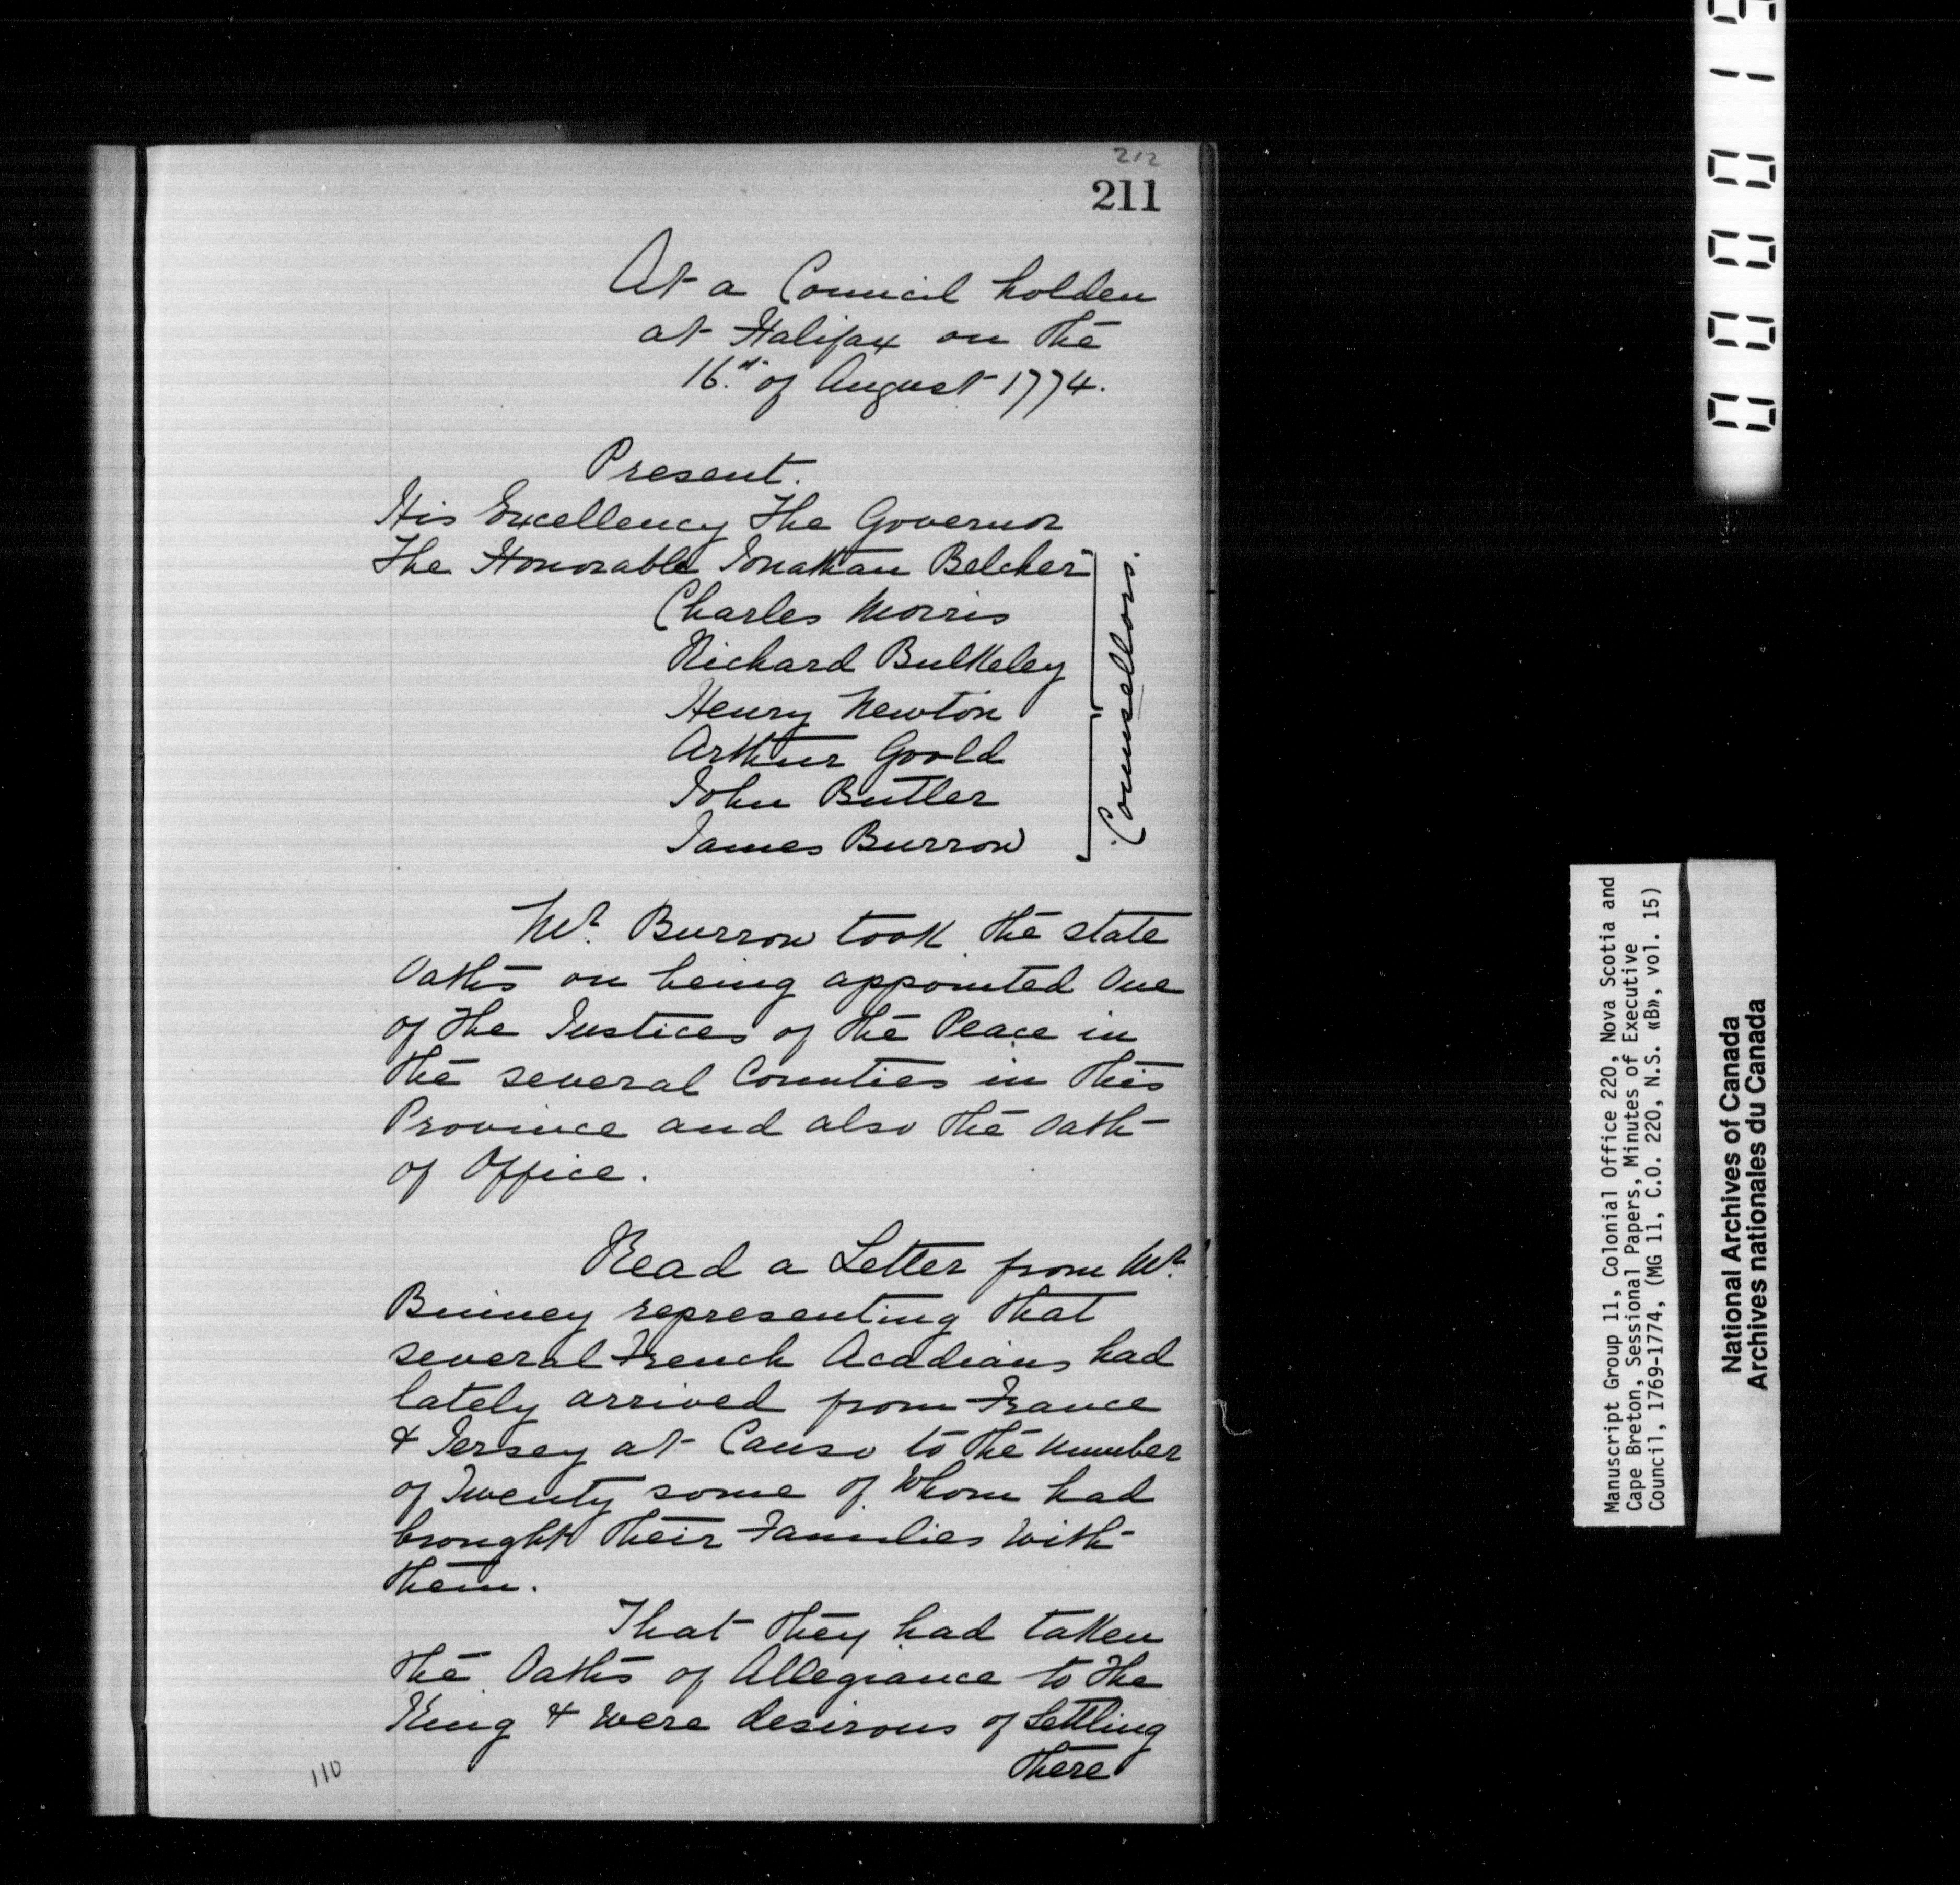 212
211
At a Council holden
at Halifax on the
16.th of August 1774.
Present.
His Excellency The Governor
The Honorable Jonathan Belcher
Charles Morris
Richard Bulkeley
Henry Newton
Arthur Goold
John Butler
James Burrow
Counsellors.
Mr. Burrow took the state
Oaths on being appointed One
of the Justices of the Peace in
the several Counties in this
Province and also the Oath
of Office.
Read a Letter from Mr.
Binney representing that
several French Acadians had
lately arrived from France
& Jersey at Canso to the number
of Twenty some of Whom had
brought their Families With
them.
That they had taken
the Oaths of Allegiance to the
King & Were desirous of Settling
there
110
Manuscript Group 11, Colonial Office 220, Nova Scotia and
Cape Breton, Sessional Papers, Minutes of Executive
Council, 1769-1774, (MG 11, C.O. 220, N.S. «B», vol. 15)
National Archives of Canada
Archives nationales du Canada